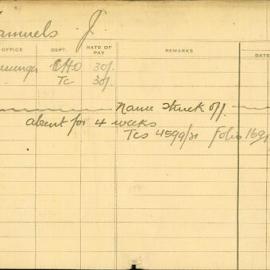 Samuels J.
OFFICE DEPT. RATE OF PAY REMARKS DATE
Messenger CHO 30/.
" TC 30/.
Name struck off.
absent for 4 weeks
Tcs 4599/21 Folio 169